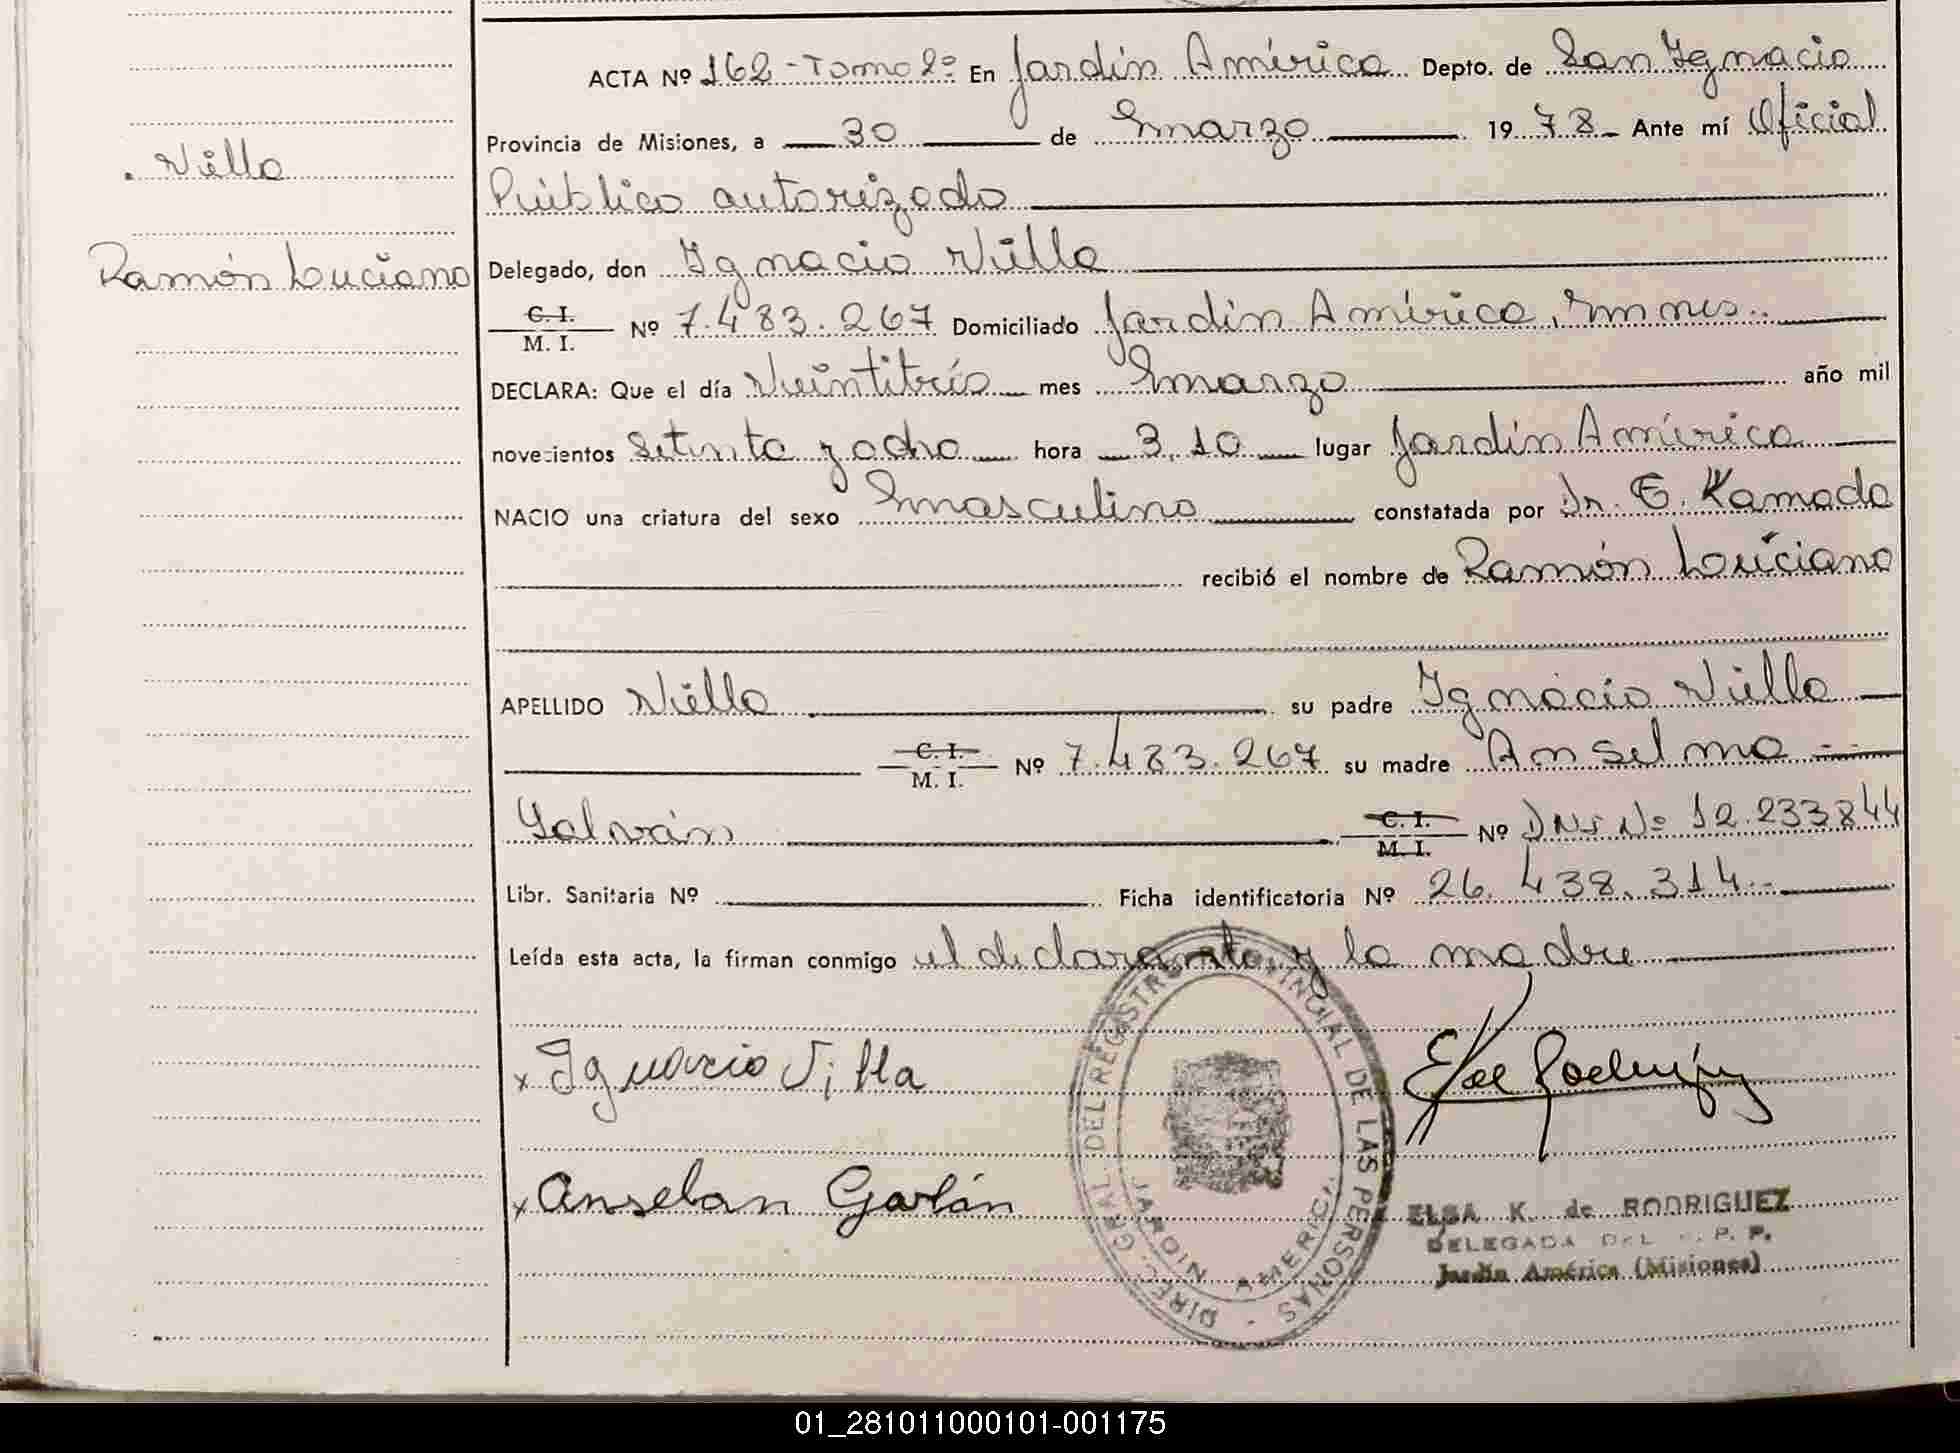 ACTA Nº 162 - Tomo 2º En Jardín América Depto. de San Ignacio
Provincia de Misiones, a 30 de marzo 1978 - Ante mí Oficial
Público autorizado
Villa
Ramón Luciano
Delegado, don Ignacio Villa
C. I.
M. I. Nº 7.483.267 Domiciliado Jardín América, Mnes..
DECLARA: Que el día Veintitrés mes marzo año mil
novecientos setenta y ocho hora 3,10 lugar Jardín América
NACIO una criatura del sexo masculino constatada por Dr. E. Kamada
recibió el nombre de Ramón Luciano
APELLIDO Villa su padre Ignacio Villa
C. I.
M. I. Nº 7.483.267 su madre Anselma
Galván C. I.
M. I. Nº DNI No 12.233844
Libr. Sanitaria Nº Ficha identificatoria Nº 26.438.314
Leída esta acta, la firman conmigo el declarante y la madre
x Ignacio Villa
x Anselan Garlán
DIREC. GRAL. DEL REGISTRO PROVINCIAL DE LAS PERSONAS -
JARDIN AMERICA
ELSA K. de RODRIGUEZ
DELEGADA DEL P. P.
Jardín América (Misiones)
01_281011000101-001175